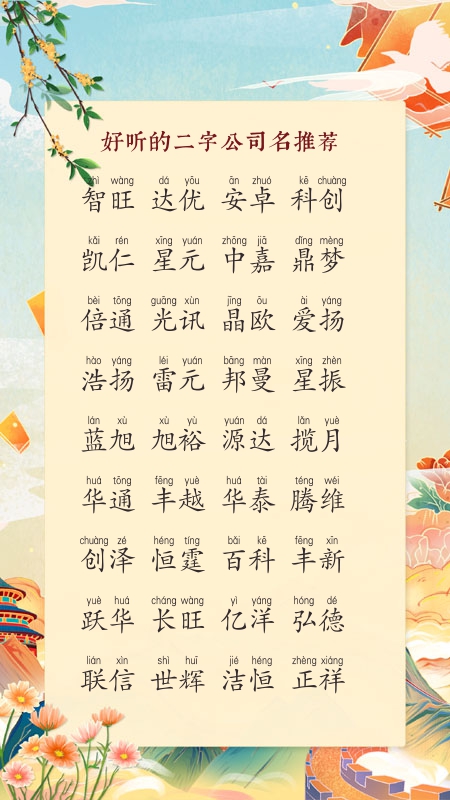 好听的二字公司名推荐
zhì wàng dá yōu ān zhuó kē chuàng
智旺 达优 安卓 科创
kǎi rén xīng yuán zhōng jiā dǐng mèng
凯仁 星元 中嘉 鼎梦
bèi tōng guāng xùn jīng ōu ài yáng
倍通 光讯 晶欧 爱扬
hào yáng léi yuán bāng màn xīng zhèn
浩扬 雷元 邦曼 星振
lán xù xù yù yuán dá lǎn yuè
蓝旭 旭裕 源达 揽月
huá tōng fēng yuè huá tài téng wéi
华通 丰越 华泰 腾维
chuàng zé héng tíng bǎi kē fēng xīn
创泽 恒霆 百科 丰新
yuè huá cháng wàng yì yáng hóng dé
跃华 长旺 亿洋 弘德
lián xìn shì huī jié héng zhèng xiáng
联信 世辉 洁恒 正祥